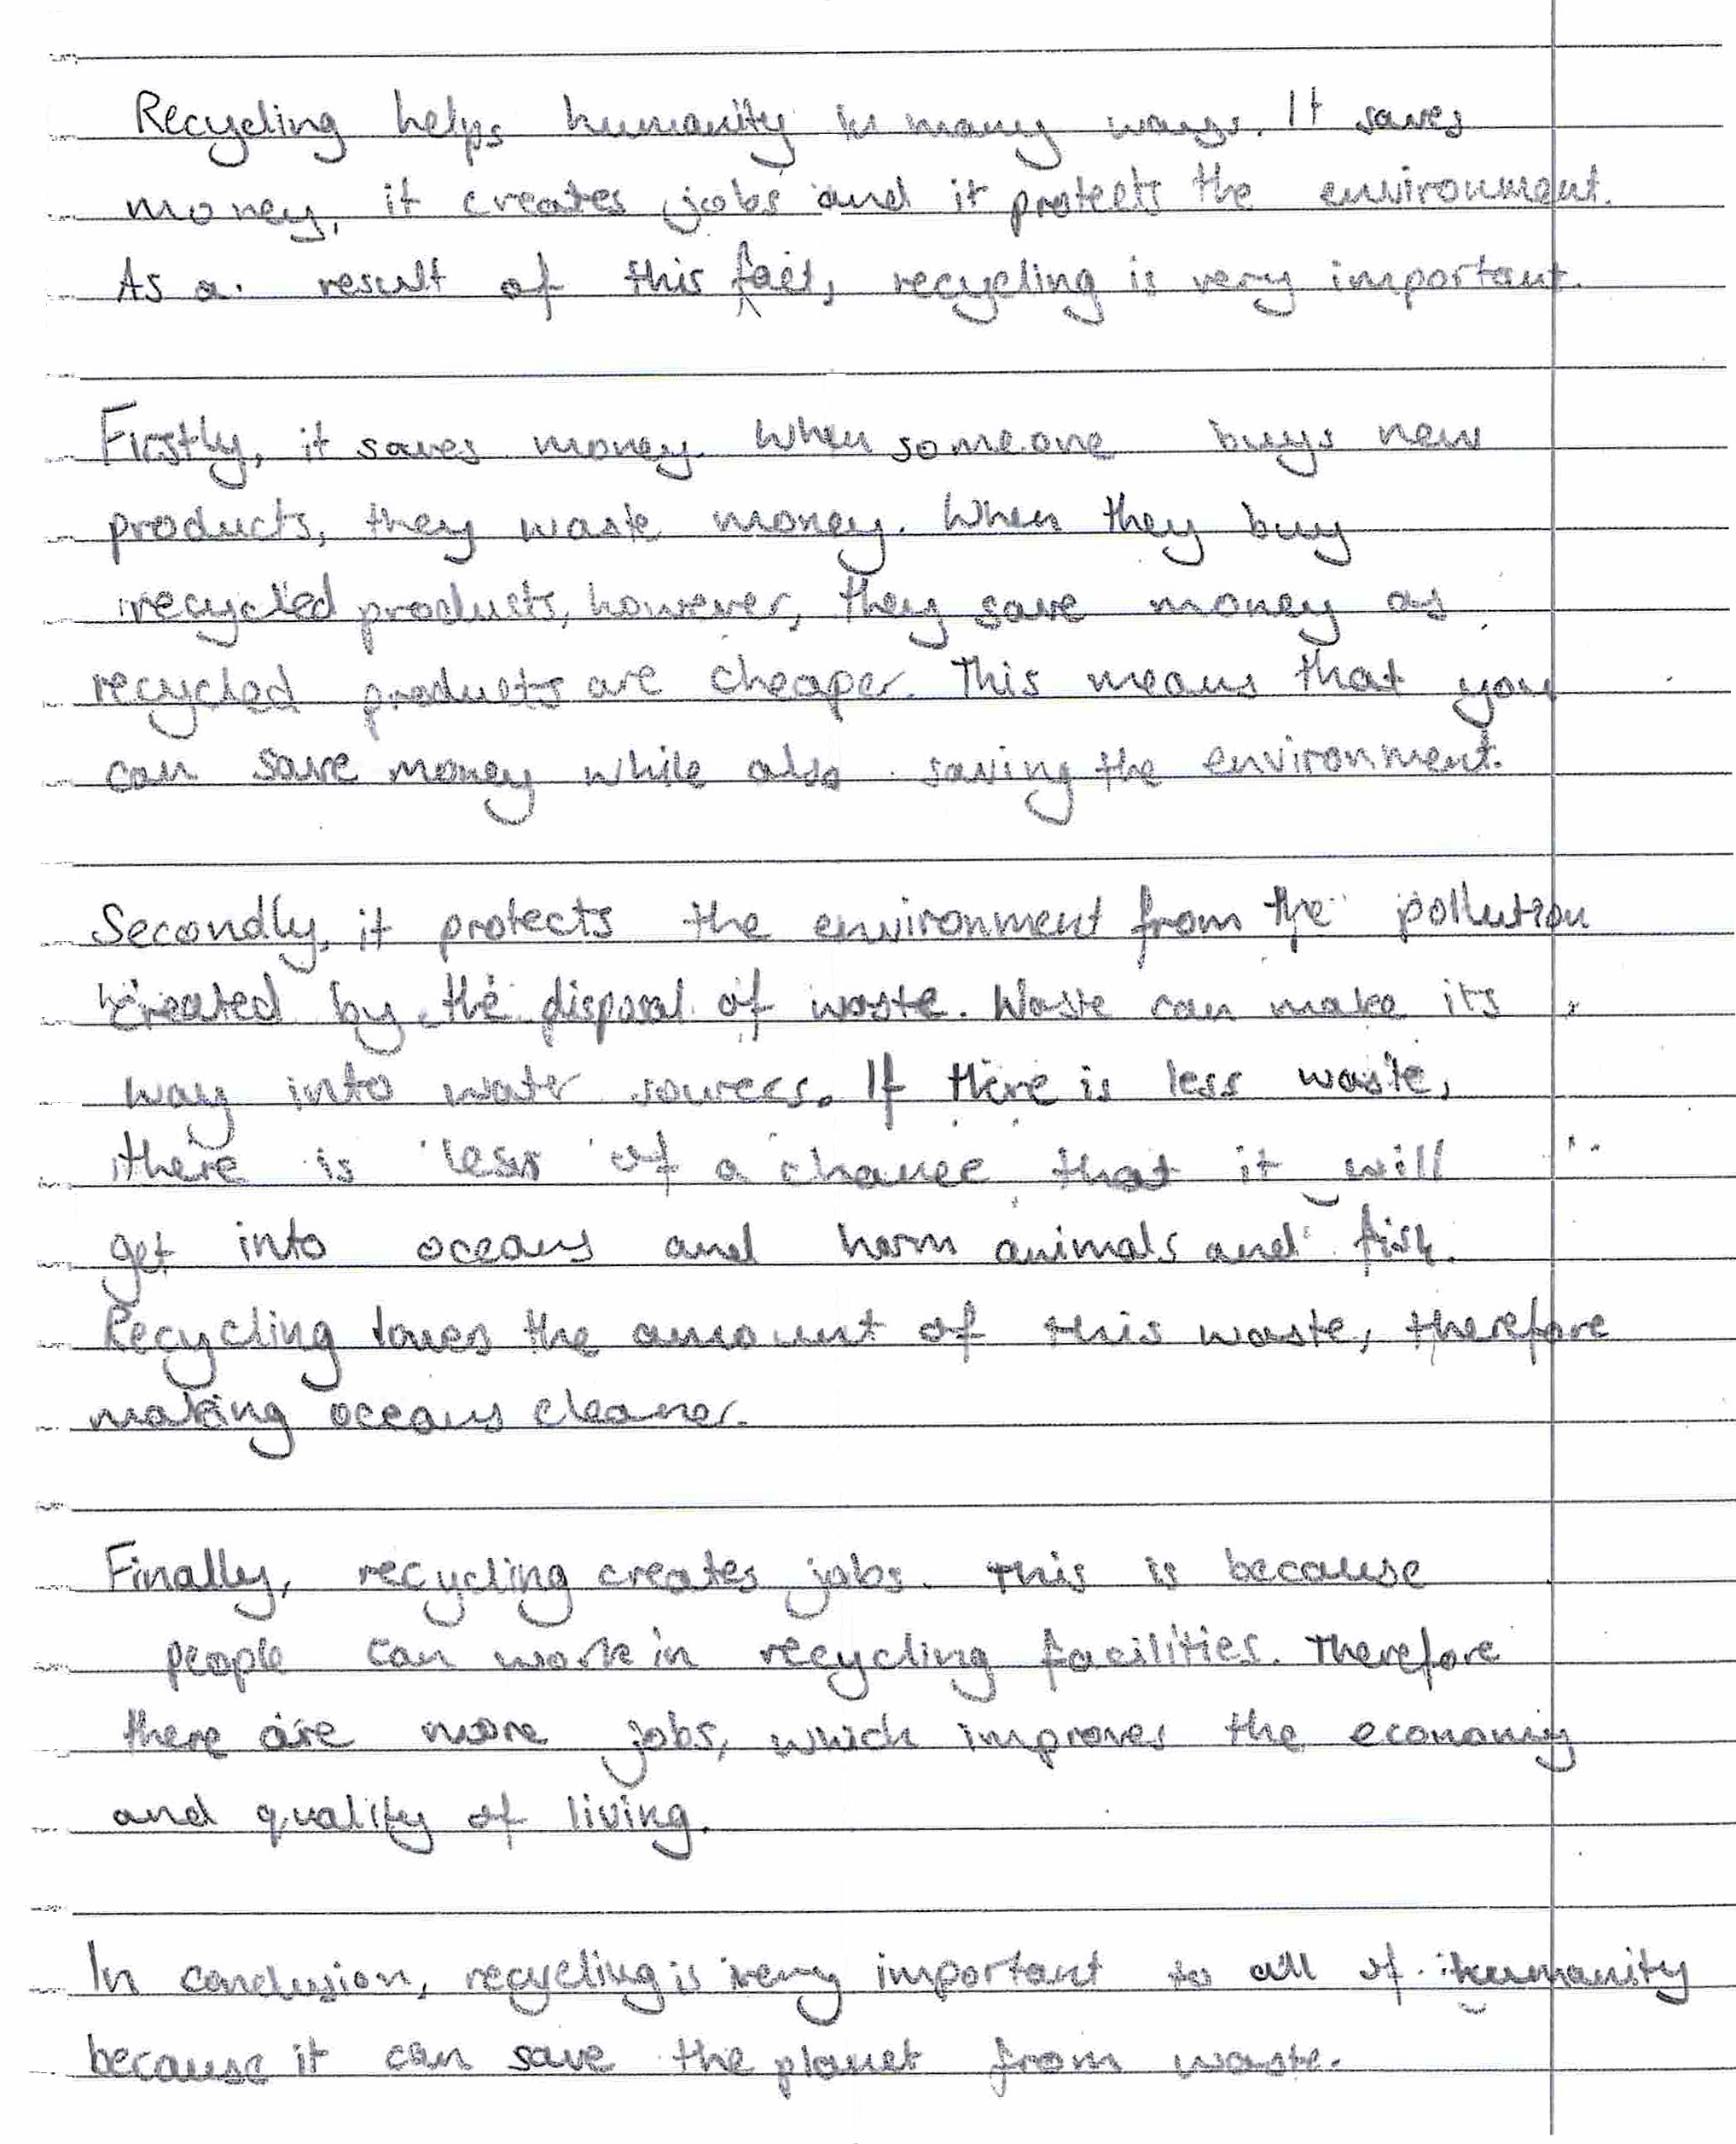 Recycling helps humanity in many ways. It saves
money, it creates jobs and it protects the environment.
As a result of this fact, recycling is very important.
Firstly, it saves money. When someone buys new
products, they waste money. When they buy
recycled products, however, they save money as
recycled products are cheaper. This means that you
can save money while also saving the environment.
Secondly, it protects the environment from the pollution
created by the disposal of waste. Waste can make its
way into water sources. If there is less waste,
there is less of a chance that it will
get into oceans and harm animals and fish.
Recycling lowes the amount of this waste, therefore
making oceans cleaner.
Finally, recycling creates jobs. This is because
people can work in recycling facilities. Therefore
there are more jobs, which improves the economy
and quality of living.
In conclusion, recycling is very important to all of humanity
because it can save the planet from waste.